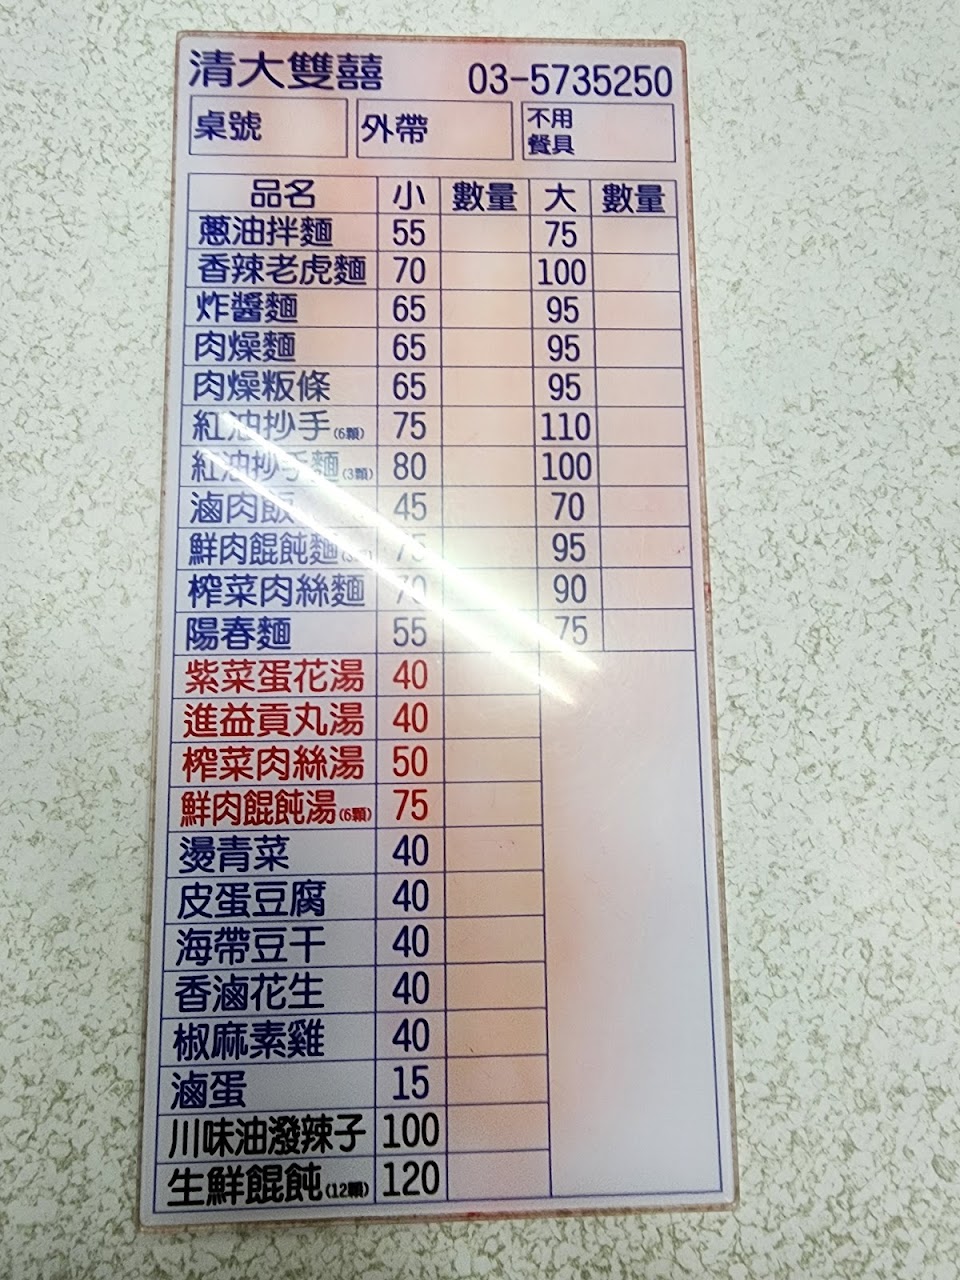 清大雙囍 03-5735250
桌號 外帶 不用餐具
品名 小 數量 大 數量
蔥油拌麵 55 75
香辣老虎麵 70 100
炸醬麵 65 95
肉燥麵 65 95
肉燥粄條 65 95
紅油抄手(6顆) 75 110
紅油抄手麵(3顆) 80 100
滷肉飯 45 70
鮮肉餛飩麵 75 95
榨菜肉絲麵 70 90
陽春麵 55 75
紫菜蛋花湯 40
進益貢丸湯 40
榨菜肉絲湯 50
鮮肉餛飩湯(6顆) 75
燙青菜 40
皮蛋豆腐 40
海帶豆干 40
香滷花生 40
椒麻素雞 40
滷蛋 15
川味油潑辣子 100
生鮮餛飩(12顆) 120